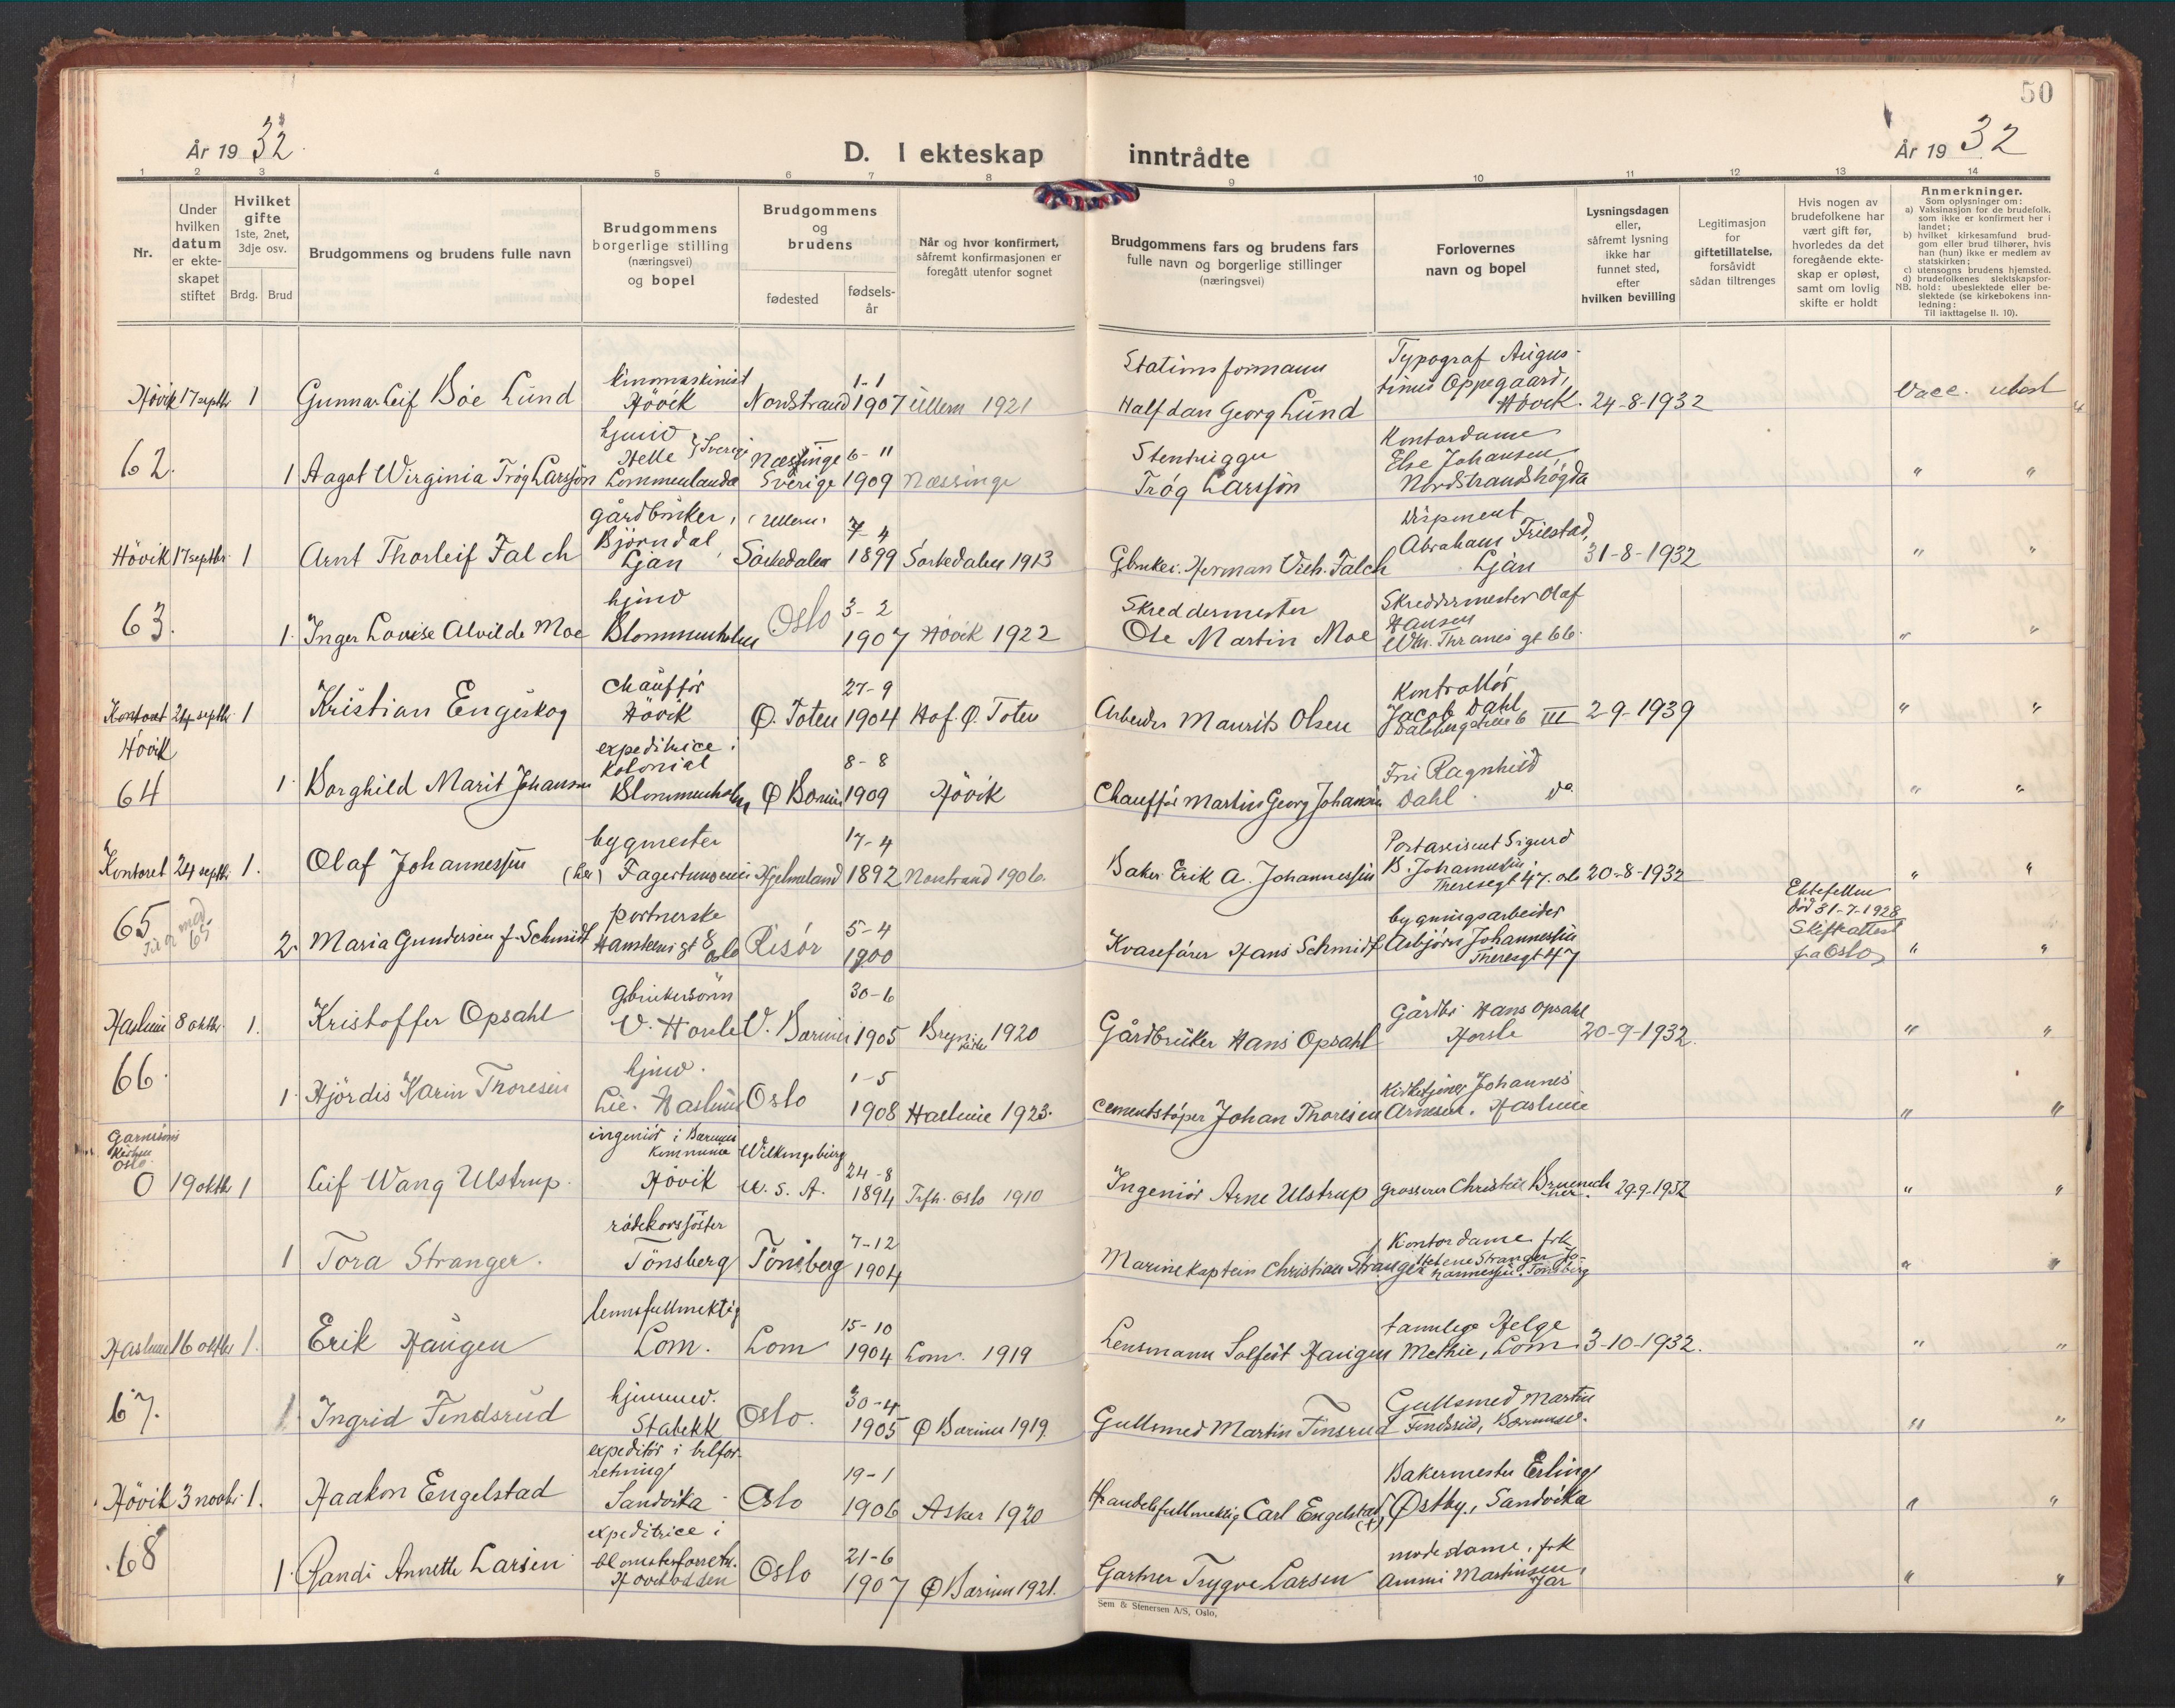 50
År 1932
D. I ekteskap inntrådte
År 1932
1 2 3 4 5 6 7 8 9 10 11 12 13 14
Nr.
Under hvilken datum er ekte-skapet stiftet
Hvilket gifte 1ste, 2net, 3dje osv.
Brdg. Brud
Brudgommens og brudens fulle navn
Brudgommens borgerlige stilling (næringsvei) og bopel
Brudgommens og brudens
fødested
fødsels-år
Når og hvor konfirmert, såfremt konfirmasjonen er foregått utenfor sognet
Brudgommens fars og brudens fars fulle navn og borgerlige stillinger (næringsvei)
Forlovernes navn og bopel
Lysningsdagen eller, såfremt lysning ikke har funnet sted, efter hvilken bevilling
Legitimasjon for giftetillatelse, forsåvidt sådan tiltrenges
Hvis nogen av brudefolkene har vært gift før, hvorledes da det foregående ekte-skap er opløst, samt om lovlig skifte er holdt
Anmerkninger.
Som oplysninger om:
a) Vaksinasjon for de brudefolk, som ikke er konfirmert her i landet;
b) hvilket kirkesamfund brud-gom eller brud tilhører, hvis han (hun) ikke er medlem av statskirken;
c) utensogns brudens hjemsted.
d) brudefolkenes slektskapsfor-hold: ubeslektede eller be-slektede (se kirkebokens inn-ledning:
NB.
Til iakttagelse II. 10).
Hövik 17 septbr 1 Gunnar Leif Bóe Lund
Hövik
1-1
Nordstrand 1907 Ullern 1921
Stationsformann
Halfdan Georg Lund
Typograf Augus-
tinus Oppegaard,
Hövik. 24-8-1932
Vacc. ubesl
62.
1 Aagot Wirginia Tróg Larssón
Helle Sverige
Lommelanda
Næssinge 6-11
Sverige 1909 Næssinge
Stenhugger
Tróg Larssón
Kontordame
Else Johansen,
Nordstrandshógda
" "
Hövik 17 septbr. 1 Arnt Thorleif Falch
gårdbruker,
Björndal
Ljan
(Ullern)
Sörkedalen 7-4
1899 Sörkedalen 1913
Gbruker. Herman Vilh. Falch
Disponent
Abraham Frilstad,
Ljan 31-8-1932
" "
63.
1. Inger Lovise Alvilde Moe
Blommenholm
Oslo 3-2
1907 Hövik 1922
Skreddermester
Ole Martin Moe
Skreddermester Olaf
Hansen
Wm. Thranes gt 66.
" "
Kontoret 24 septbr. 1 Kristian Engeskog
Hövik
chauffór
Hövik
27-9
Ø. Toten 1904 Hof. Ø. Toten
Arbeider Maurits Olsen
Kontrollór
Jacob Dahl
Dalsbergstien 6 III 2-9-1939
" "
64
1. Borghild Marit Johansen
expeditrice i
Kolonial
Blommenholm
8-8
Ø Bærum 1909 Hövik
Chauffór Martin Georg Johansen
Frú Ragnhild
Dahl do
" "
Kontoret 24 septbr. 1. Olaf Johannessen
bygmester
(her) Fagertunveien
17-4
Hjelmeland 1892 Norstrand 1906.
Baker Erik A. Johannessen
Postassistent Sigurd
B. Johannessen
Theresegt 47. Oslo 20-8-1932
" "
65
2. Maria Gundersen f. Schmidt
portnerske
8 Oslo
5-4
Risór 1900
Hans Schmidt
bygningsarbeider
Asbjórn Johannessen
Theresgt 47
Ektefellen
död 31-7-1928
Skifteattest
fra Oslo
" "
Haslum 8 oktbr. 1. Kristoffer Opsahl
Gbrukersönn
V. Hosle
30-6
V. Bærum 1905 Bryn kirke 1920
Gårdbruker Hans Opsahl
Gårdbr Hans Opsahl
Hosle 20-9-1932.
" "
66.
1. Hjördis Karin Thoresen
hjmv.
Lie. Haslum
1-5
Oslo 1908 Haslum 1923.
Cementstóper Johan Thoresen
Kirketjener Johannes
Arnesen. Haslum
" "
Garnisons
Kirken
Oslo.
0 19 oktbr 1 Leif Wang Ulstrup.
ingeniór i Bærums
Kommune
Hövik
Wilkingsburg
U. S. A.
24-8
1894 Trfh. Oslo 1910
Ingeniór Arne Ulstrup
grosserer Christian
29-9-1932
" "
1 Tora Stranger.
rödekorssöster
Tönsberg Tönsberg 7-12
1904
Marinekaptein Christian Stranger
Kontordame frk
Helene Stranger Jo-
hannessen. Tönsberg
" "
Haslum 16 oktbr 1. Erik Haugen
lensfullmektig
Lom. Lom 15-10
1904 Lom. 1919
Lensmann Solfest Haugen
tannlege Helge
Methie, Lom 3-10-1932.
" "
67.
1. Ingrid Findsrud
hjemmev.
Stabekk Oslo. 30-4
1905 Ø Bærum 1919
Gullsmed Martin Finsrud
Gullsmed Martin
Findsrud, Bærumsv.
" "
Hövik 3 novbr. 1. Haakon Engelstad
expeditór i bilfor-
retning
Sandvika Oslo 19-1
1906 Asker 1920
Handelsfullmektig Carl Engelstad
(+)
Bakermester Erling
Østby, Sandvika
" "
68
1. Randi Annette Larsen
expeditrice i
blomsterforretn.
Hövikodden Oslo 21-6
1907 Ø Bærum 1921.
Gartner Trygve Larsen
modedame. frk
Ammi Martinsen,
Jar
" "
Sem & Stenersen A/S, Oslo,